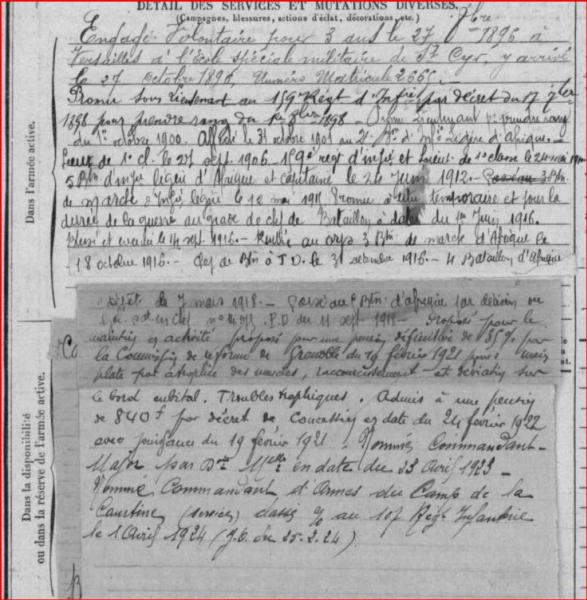 DÉTAIL DES SERVICES ET MUTATIONS DIVERSES.
(Campagnes, blessures, actions d'éclat, décorations, etc.)
Engagé Volontaire pour 3 ans le 27 7bre 1896 à
Versailles à l'École spéciale militaire de St Cyr, y arrivé
le 27 octobre 1896, Numéro Matricule
Promu sous lieutenant au 159e Régt d'Infrie par décret du 17 7bre
1898 pour prendre rang du 1er 8bre 1898 - Promu Lieutenant pr prendre rang
du 1er octobre 1900. Affecté le 31 octobre 1901 au 2e Bn d'Inf Légère d'Afrique.
Lieut de 1e Cl. le 27 sept. 1906 - 159e régt d'infie et lieut. de 1e classe le
5 Btn d'infie légère d'Afrique et capitaine le 24 Juin 1912. Passé au 3 Btn
de marche d'Infie légère le 12 mai 1911 Promu à titre temporaire et pour la
durée de la guerre au grade de chef de Bataillon à dater du 1er Juin 1916.
Blessé et évacué le 14 sept. 1916 - Rentré au corps 3 Btn de marche d'Afrique le
18 octobre 1916 - Chef de Btn à T.D. le 31 décembre 1916 - 4 Bataillon d'Afrique
décret du 7 mars 1918 - Passé au Btn d'Afrique par décision du
Gd en Chef n° P.D du 11 sept 1918 - Proposé pour le
maintien en activité proposé pour une pension définitive de 85% par
la Commission de réforme de Grenoble du 19 février 1921 pour main
plate par atrophie des muscles, raccourcissement et déviation sur
le bord cubital. Troubles trophiques. Admis à une pension
de 840 f par décret de Concession en date du 24 février 1922
avec jouissance du 19 février 1921. Nommé Commandant-
Major par Don Melle en date du 23 Avril 1923 -
Nommé Commandant d'Armes du Camp de la
Courtine (services) classé % au 107 Régt Infanterie
le 1 Avril 1924 (J.O. du 25.2.24).
Dans l'armée active.
Dans la disponibilité
ou dans la réserve de l'armée active.